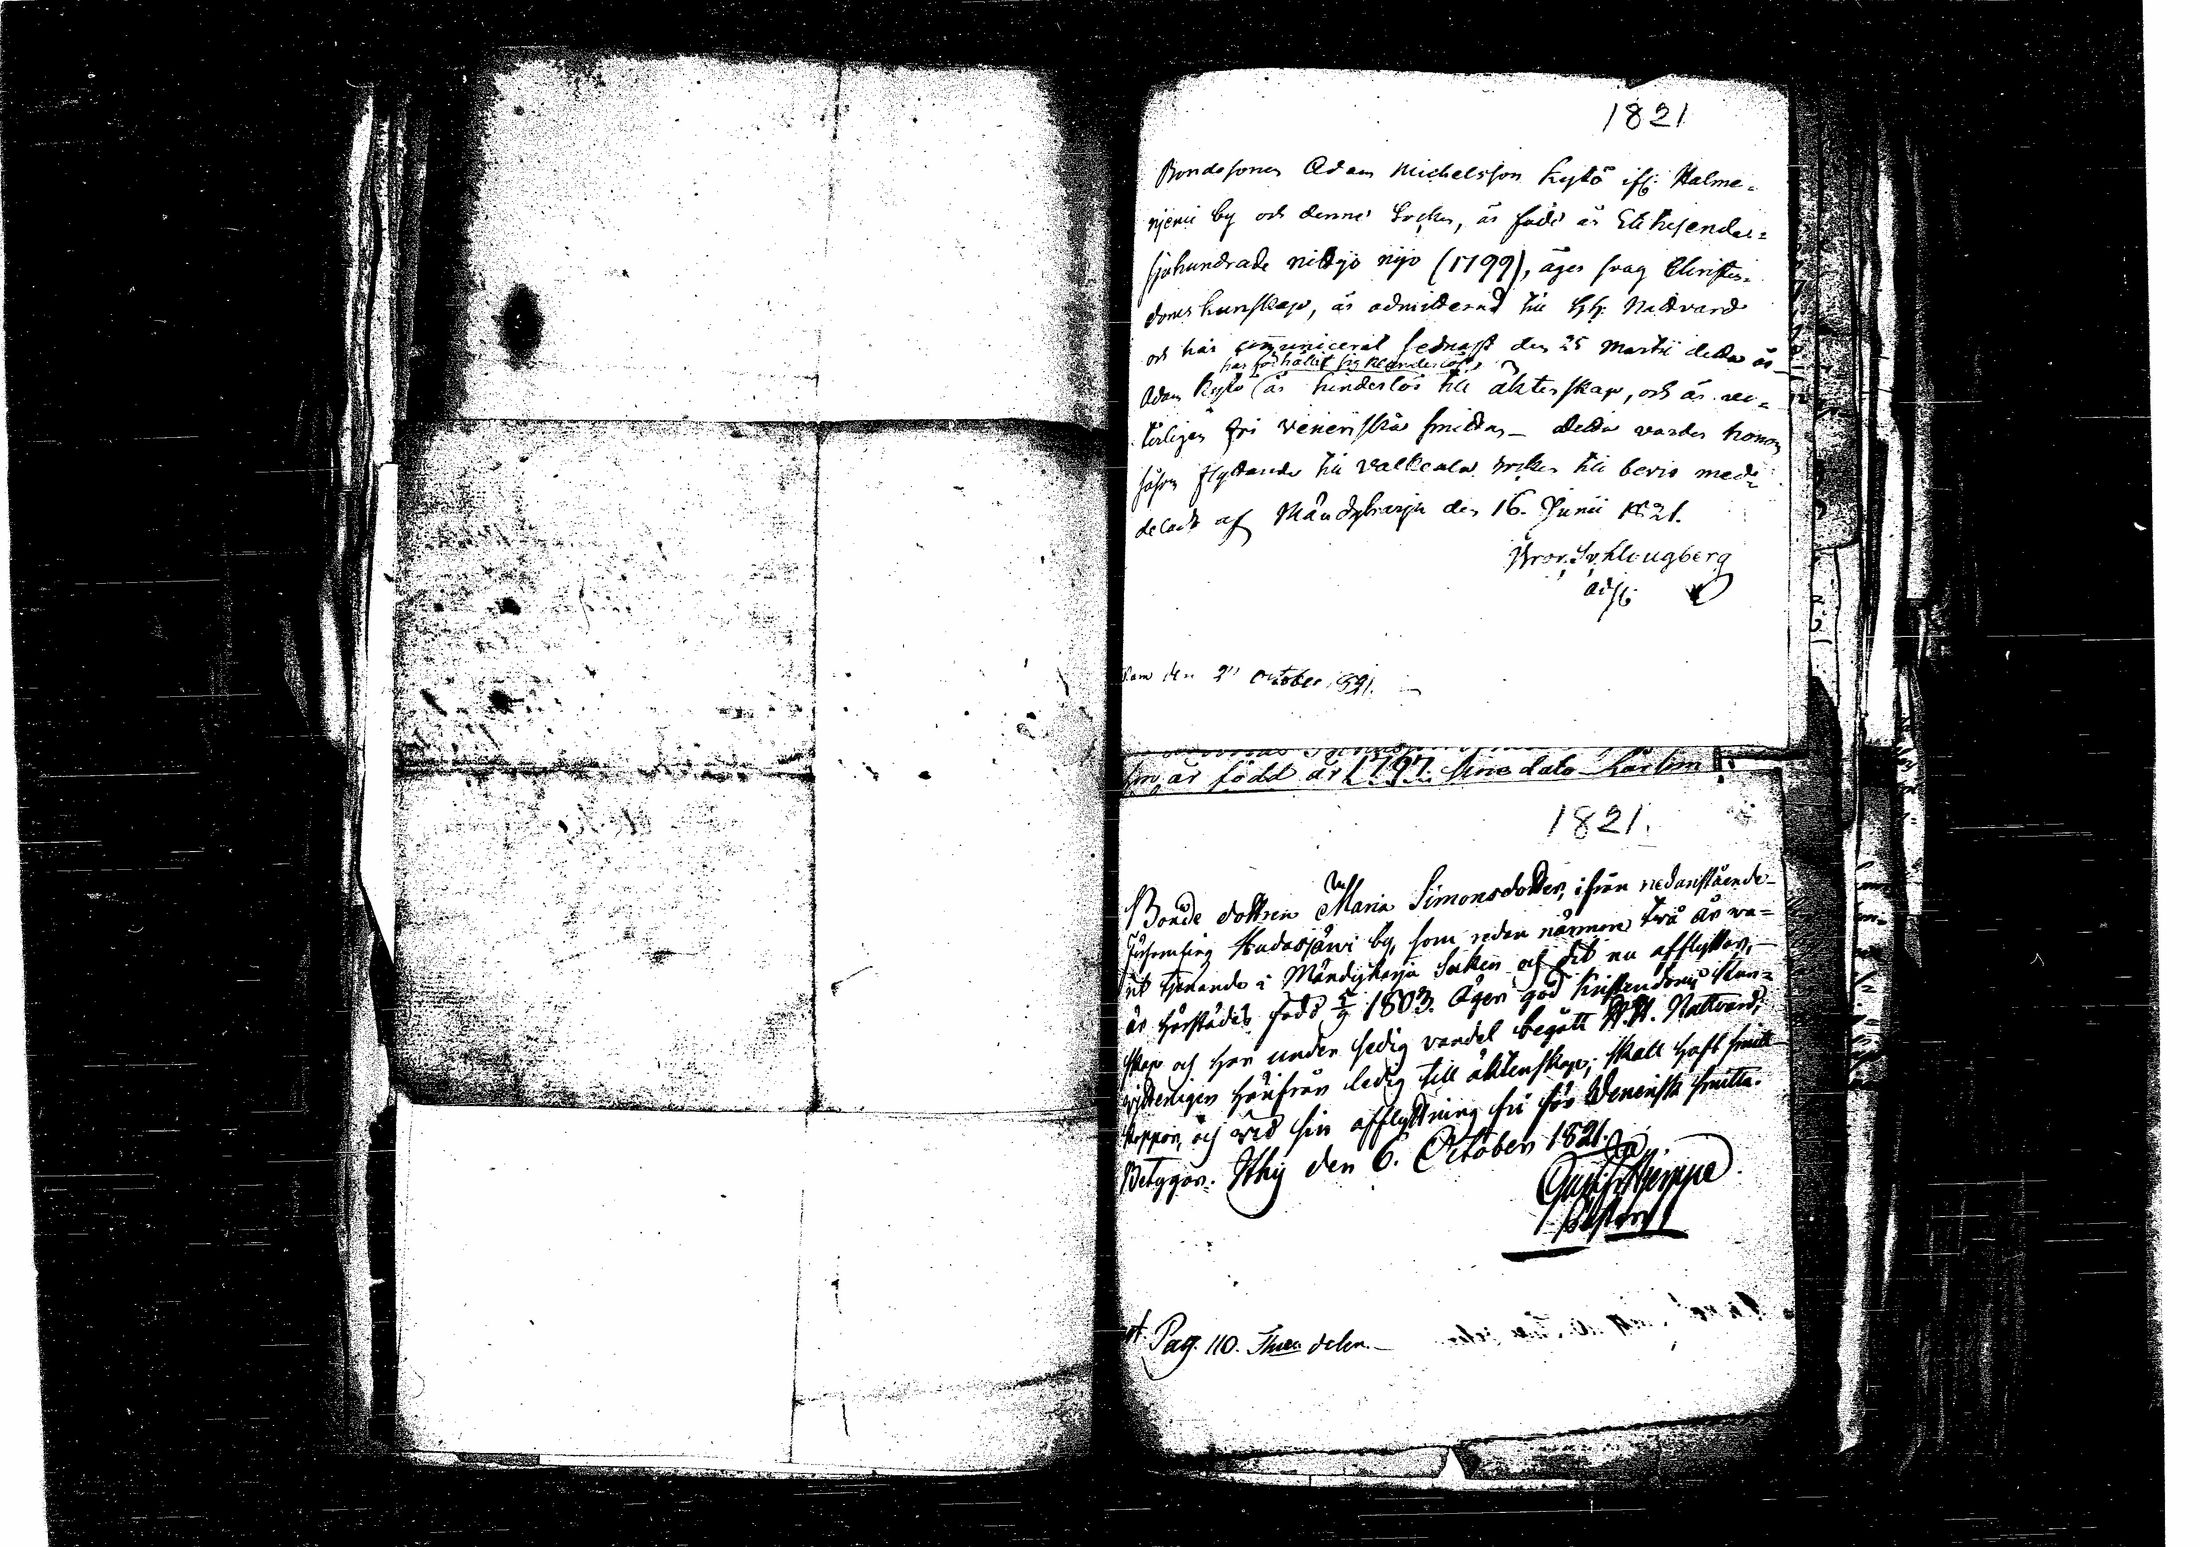 1821
Bondesonen Adam Michelsson Kyttö ifr. Halme-
niemi by och denne Socken, är född år Ettusende-
sjuhundrade nittijo nijo (1799), äger svag Christen-
doms kunskap, är admitterad till H.H. Nattvard
och har communicerat sednast den 25 Martii detta år
har förhållit sig klanderlöst,
Adam Kyttö är hinderlös till äktenskap, och är ve-
terligen fri Veneriska smittan - Detta varder honom
såsom flyttande till Valkeala Socken till bevis med-
deladt af Mändyharju den 16. Junii 1821.
Adj.
den 2 October 1821.
är född år 1797. sine dato
1821.
Bonde dottren Maria Simonsdotter, ifrån nedanstående
Församling Hadasjärvi by, som redan närmare två år va-
rit tjenande i Mändyharju Socken och dit nu afflyttar,
är härstädes född 5/9 1803. Äger god Kristendoms kun-
skap och har under sedig vandel begått H.H. Nattvard;
vitterligen härifrån ledig till äktenskap; skall haft smitt-
koppor, och vid sin afflyttning fri för Venerisk smitta.
Betygar. Ithis den 6. October 1821.
Pag. 110. delen.